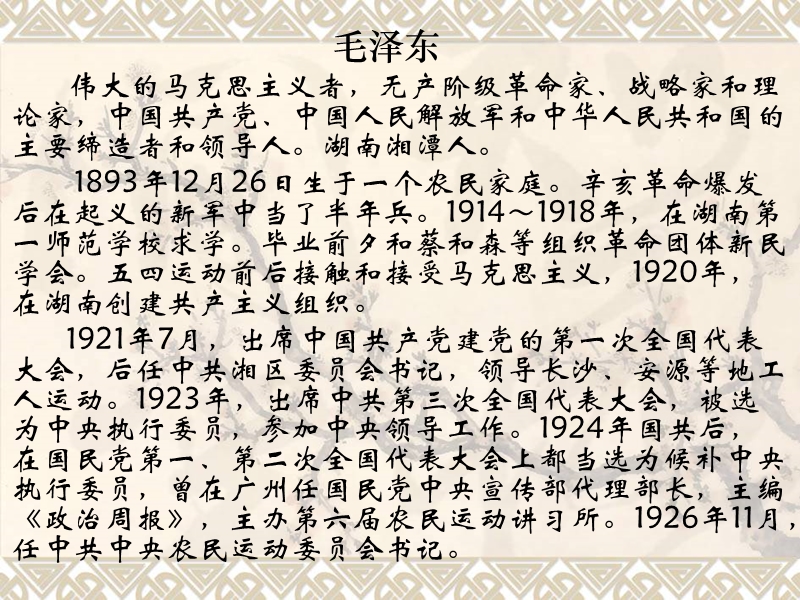 毛泽东
伟大的马克思主义者，无产阶级革命家、战略家和理
论家，中国共产党、中国人民解放军和中华人民共和国的
主要缔造者和领导人。湖南湘潭人。
1893年12月26日生于一个农民家庭。辛亥革命爆发
后在起义的新军中当了半年兵。1914～1918年，在湖南第
一师范学校求学。毕业前夕和蔡和森等组织革命团体新民
学会。五四运动前后接触和接受马克思主义，1920年，
在湖南创建共产主义组织。
1921年7月，出席中国共产党建党的第一次全国代表
大会，后任中共湘区委员会书记，领导长沙、安源等地工
人运动。1923年，出席中共第三次全国代表大会，被选
为中央执行委员，参加中央领导工作。1924年国共后，
在国民党第一、第二次全国代表大会上都当选为候补中央
执行委员，曾在广州任国民党中央宣传部代理部长，主编
《政治周报》，主办第六届农民运动讲习所。1926年11月，
任中共中央农民运动委员会书记。